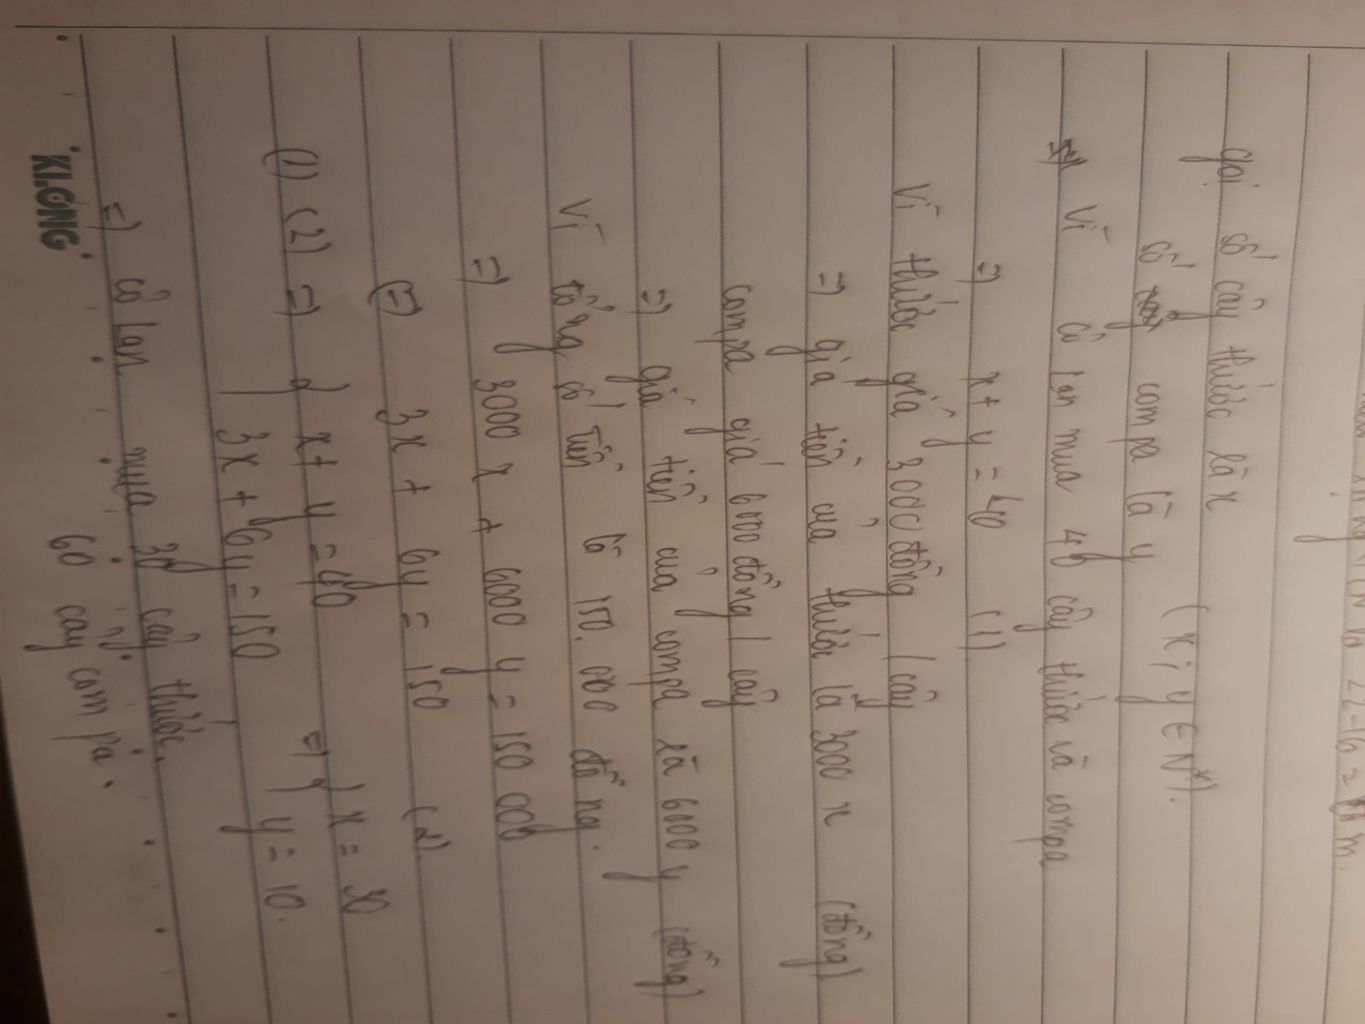 22-16 = m.
gọi số cây thước là x
số compa là y (x; y ∈ N*).
Vì cô Lan mua 40 cây thước và compa
=> x + y = 40 (1)
Vì thước giá 3000 đồng / cây
=> giá tiền của thước là 3000 x (đồng)
compa giá 6000 đồng / cây
=> giá tiền của compa là 6000 y (đồng)
Vì tổng số tiền là 150.000 đồng.
=> 3000 x + 6000 y = 150 000
(=) 3x + 6y = 150 (2).
(1) (2) => { x + y = 40 => { x = 30
3x + 6y = 150 y = 10.
=> cô lan mua 30 cây thước.
60 cây com pa.
KLONG